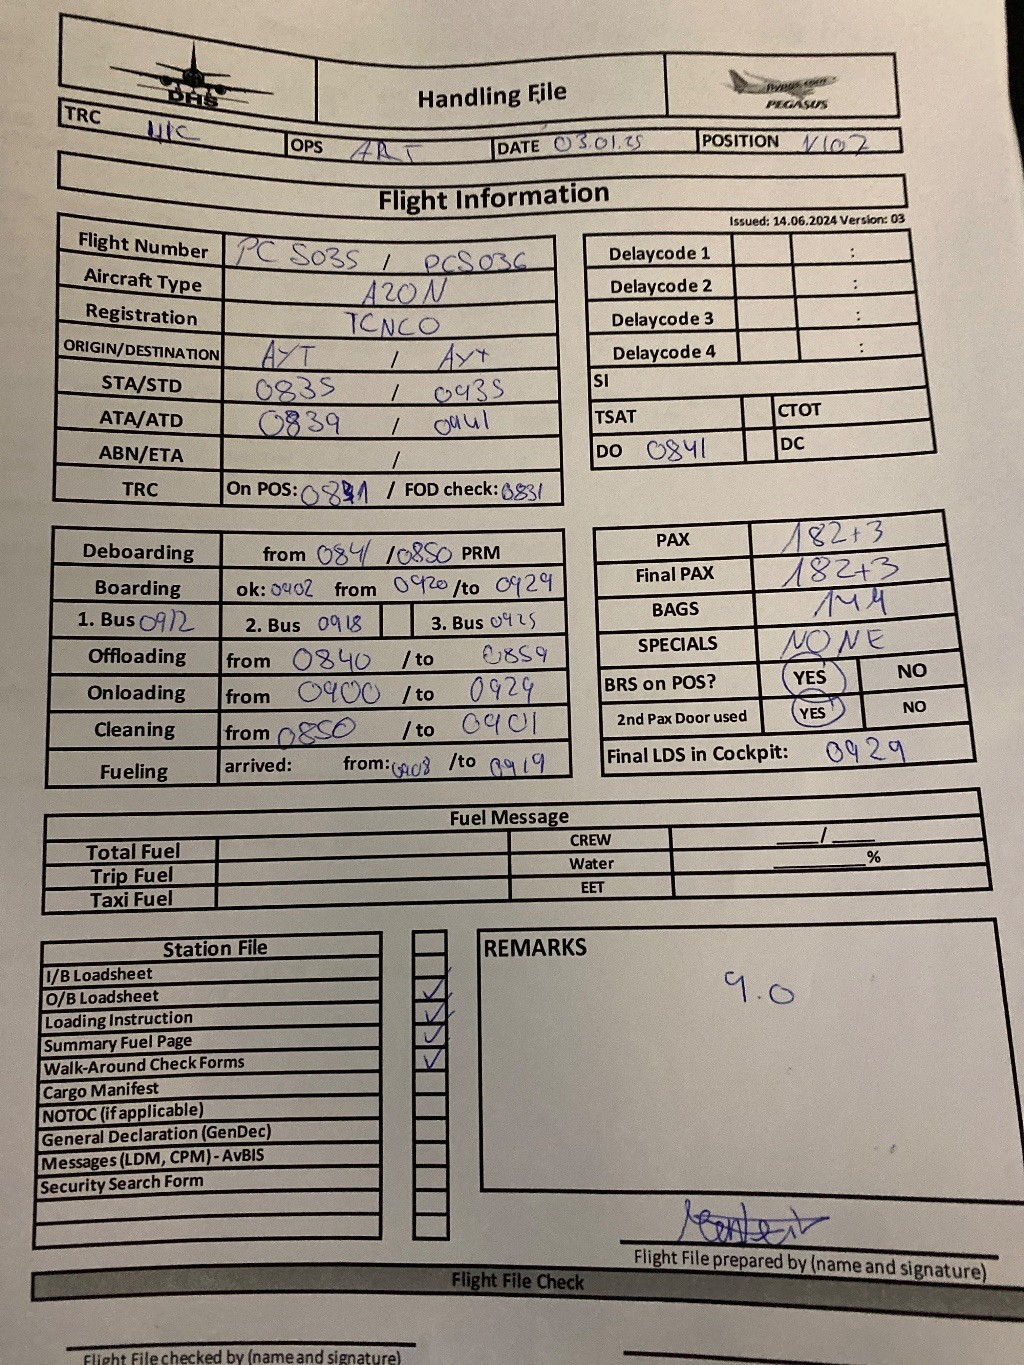 DHS
Handling File
flypgs.com
PEGASUS
TRC NIC OPS ART DATE 03.01.25 POSITION V107
Flight Information
Issued: 14.06.2024 Version: 03
Flight Number PC 5035 / PC5036
Aircraft Type A20N
Registration TCNCO
ORIGIN/DESTINATION AYT / AYT
STA/STD 0835 / 0935
ATA/ATD 0839 / 0941
ABN/ETA /
TRC On POS: / FOD check: 0831
Delaycode 1 :
Delaycode 2 :
Delaycode 3 :
Delaycode 4 :
SI
TSAT CTOT
DO 0841 DC
Deboarding from 0841 /0850 PRM
Boarding ok: 0902 from 0920 /to 0929
1. Bus 0912 2. Bus 0918 3. Bus 0925
Offloading from 0840 / to 0859
Onloading from 0900 / to 0929
Cleaning from 0850 / to 0901
Fueling arrived: from: 0908 /to 0919
PAX 182+3
Final PAX 182+3
BAGS 144
SPECIALS NONE
BRS on POS? YES NO
2nd Pax Door used YES NO
Final LDS in Cockpit: 0929
Fuel Message
Total Fuel CREW ____/____
Trip Fuel Water ________%
Taxi Fuel EET
Station File
I/B Loadsheet
O/B Loadsheet ✓
Loading Instruction ✓
Summary Fuel Page ✓
Walk-Around Check Forms ✓
Cargo Manifest
NOTOC (if applicable)
General Declaration (GenDec)
Messages (LDM, CPM) - AvBIS
Security Search Form
REMARKS
9.0
Flight File prepared by (name and signature)
Flight File Check
Flight File checked by (name and signature)